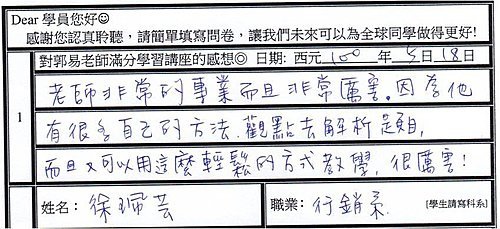 Dear 學員您好☺
感謝您認真聆聽,請簡單填寫問卷,讓我們未來可以為全球同學做得更好!
對郭易老師滿分學習講座的感想◎ 日期: 西元 100 年 5 月 18 日
1
老師非常的專業而且非常厲害.因為他
有很多自己的方法.觀點去解析題目,
而且又可以用這麼輕鬆的方式教學,很厲害!
姓名: 徐珮芸
職業: 行銷系 [學生請寫科系]